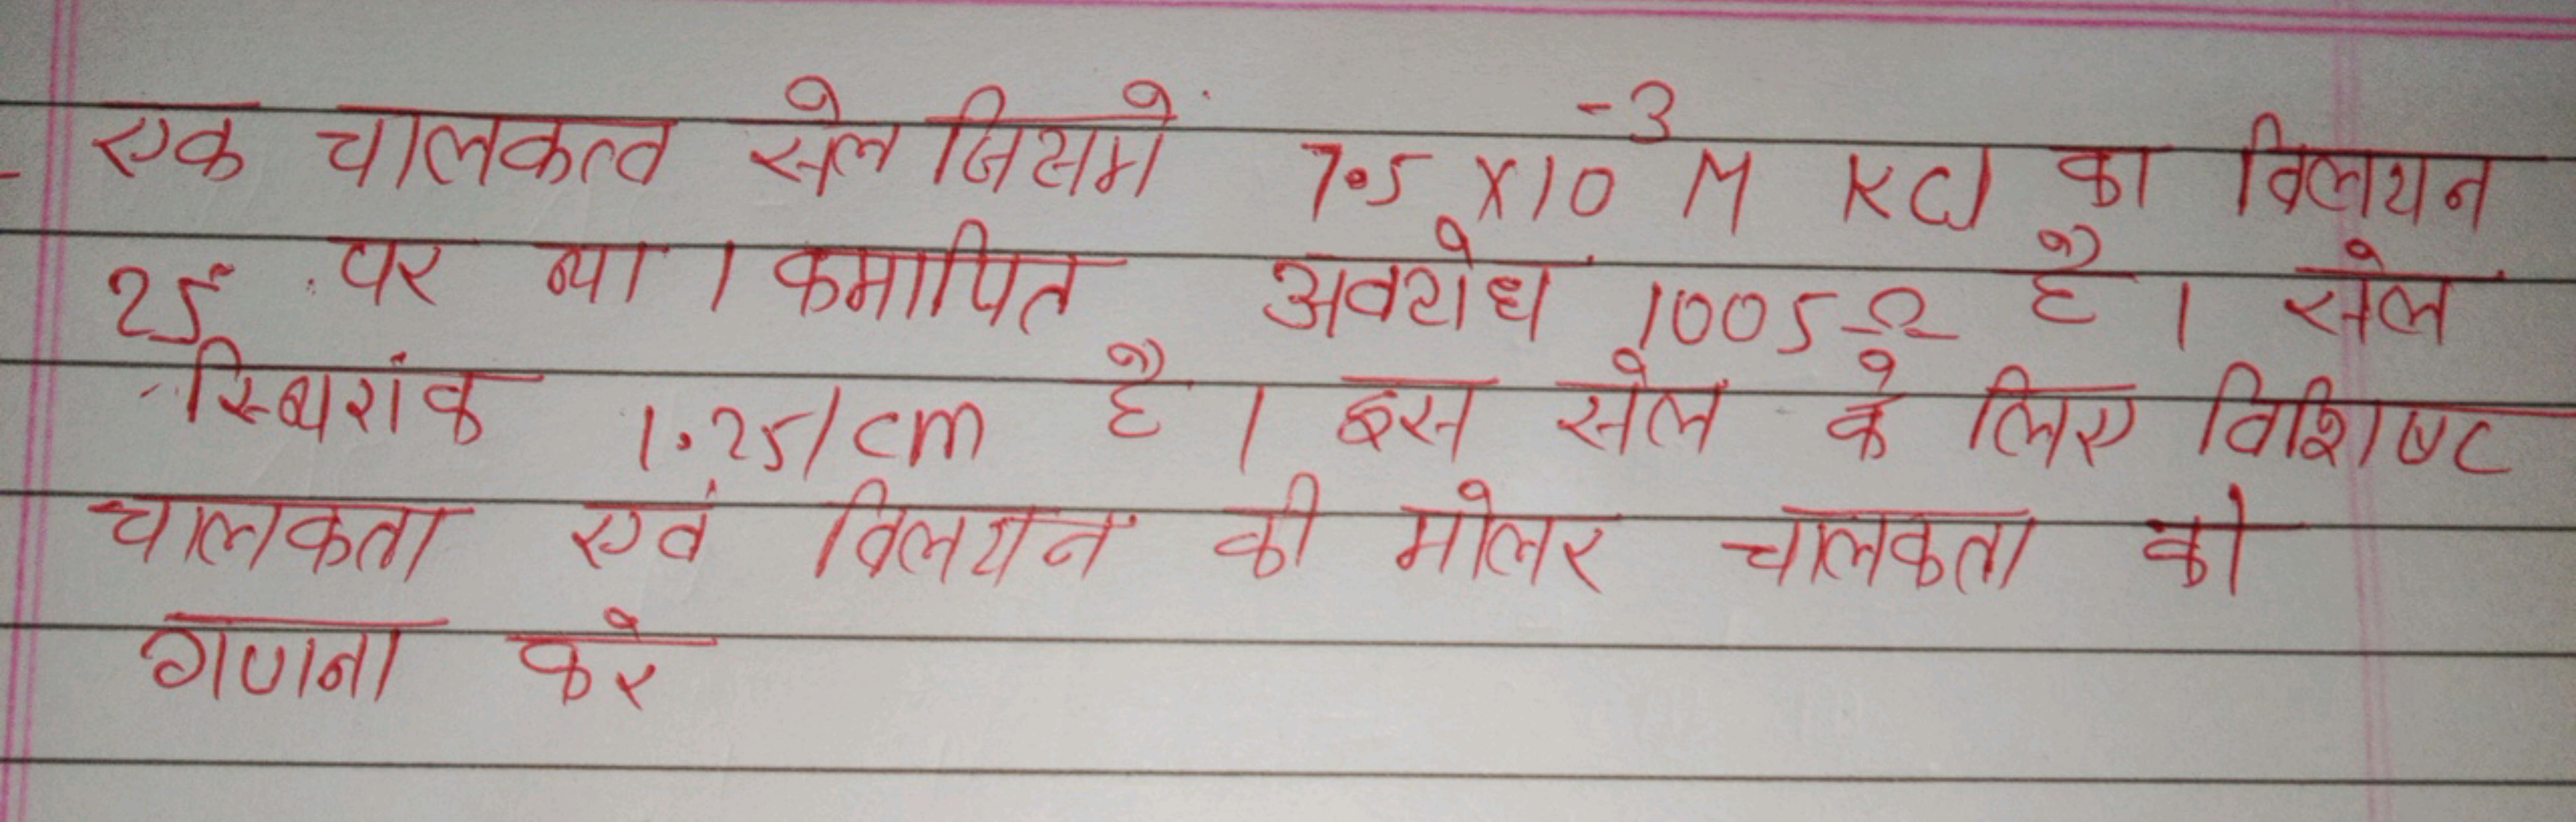 एक चालकत्व सेल जिसमें 7.5 X10⁻³ M KCl का विलयन
25° पर था । कमापित अवरोध 1005 Ω है । सेल
स्थिरांक 1.25/cm है । इस सेल के लिए विशिष्ट
चालकता एवं विलयन की मोलर चालकता की
गणना करे